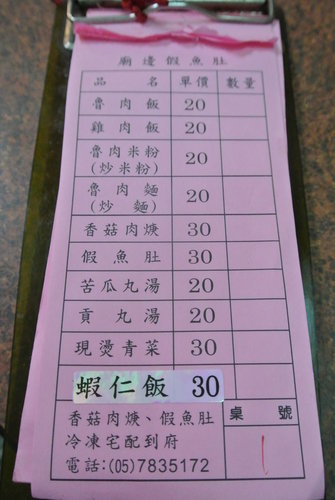 廟邊假魚肚
品名 單價 數量
魯肉飯 20
雞肉飯 20
魯肉米粉
(炒米粉) 20
魯肉麵
(炒麵) 20
香菇肉焿 30
假魚肚 30
苦瓜丸湯 20
貢丸湯 20
現燙青菜 30
蝦仁飯 30
香菇肉焿、假魚肚
冷凍宅配到府
電話:(05)7835172
桌號
1